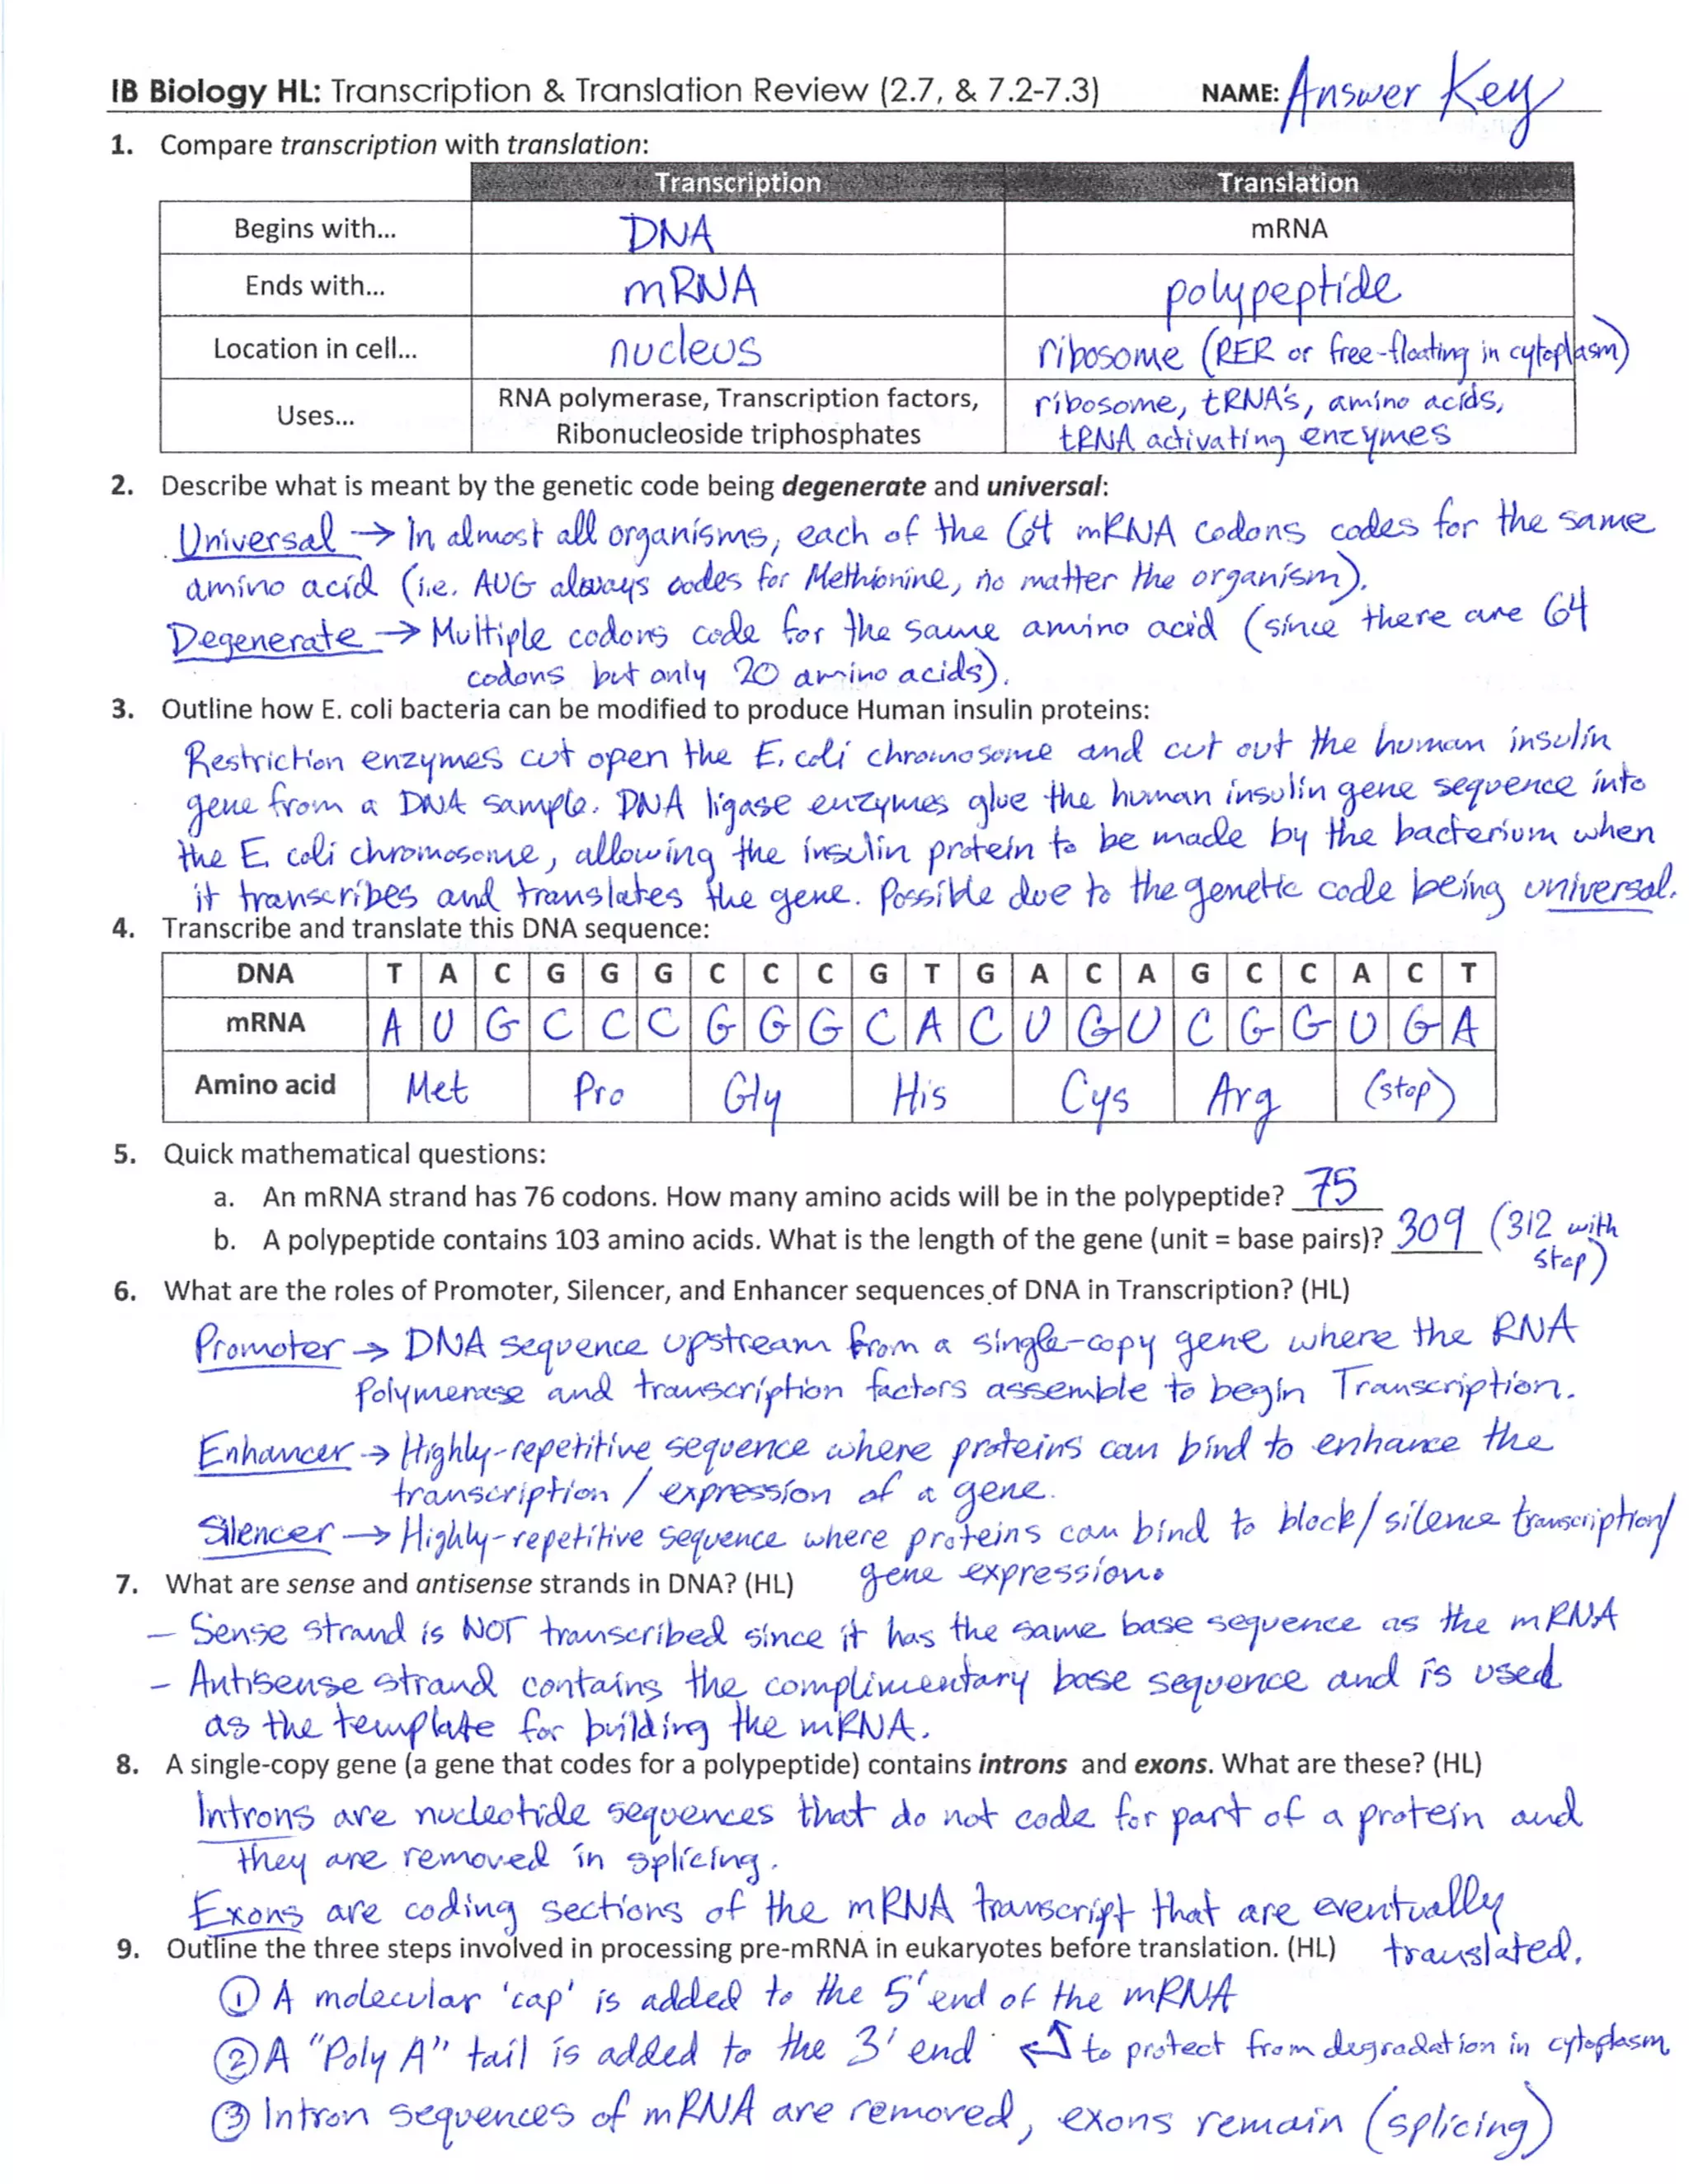 IB Biology HL: Transcription & Translation Review (2.7, & 7.2-7.3) NAME: Answer Key
1. Compare transcription with translation:
Transcription Translation
Begins with... DNA mRNA
Ends with... mRNA polypeptide
Location in cell... nucleus ribosome (RER or free-floating in cytoplasm)
Uses... RNA polymerase, Transcription factors, Ribonucleoside triphosphates ribosome, tRNA's, amino acids, tRNA activating enzymes
2. Describe what is meant by the genetic code being degenerate and universal:
Universal → In almost all organisms, each of the 64 mRNA codons codes for the same
amino acid (i.e. AUG always codes for Methionine, no matter the organism).
Degenerate → Multiple codons code for the same amino acid (since there are 64
codons but only 20 amino acids).
3. Outline how E. coli bacteria can be modified to produce Human insulin proteins:
Restriction enzymes cut open the E. coli chromosome and cut out the human insulin
gene from a DNA sample. DNA ligase enzymes glue the human insulin gene sequence into
the E. coli chromosome, allowing the insulin protein to be made by the bacterium when
it transcribes and translates the gene. Possible due to the genetic code being universal.
4. Transcribe and translate this DNA sequence:
DNA T A C G G G C C C G T G A C A G C C A C T
mRNA A U G C C C G G G C A C U G U C G G U G A
Amino acid Met Pro Gly His Cys Arg (stop)
5. Quick mathematical questions:
a. An mRNA strand has 76 codons. How many amino acids will be in the polypeptide? 75
b. A polypeptide contains 103 amino acids. What is the length of the gene (unit = base pairs)? 309 (312 with
stop)
6. What are the roles of Promoter, Silencer, and Enhancer sequences of DNA in Transcription? (HL)
Promoter → DNA sequence upstream from a single-copy gene where the RNA
Polymerase and transcription factors assemble to begin Transcription.
Enhancer → Highly-repetitive sequence where proteins can bind to enhance the
transcription / expression of a gene.
Silencer → Highly-repetitive sequence where proteins can bind to block/silence transcription/
gene expression.
7. What are sense and antisense strands in DNA? (HL)
- Sense strand is NOT transcribed since it has the same base sequence as the mRNA
- Antisense strand contains the complimentary base sequence and is used
as the template for building the mRNA.
8. A single-copy gene (a gene that codes for a polypeptide) contains introns and exons. What are these? (HL)
Introns are nucleotide sequences that do not code for part of a protein and
they are removed in splicing.
Exons are coding sections of the mRNA transcript that are eventually
translated.
9. Outline the three steps involved in processing pre-mRNA in eukaryotes before translation. (HL)
① A molecular 'cap' is added to the 5' end of the mRNA
② A "Poly A" tail is added to the 3' end ↵↑ to protect from degradation in cytoplasm
③ Intron sequences of mRNA are removed, exons remain (splicing)